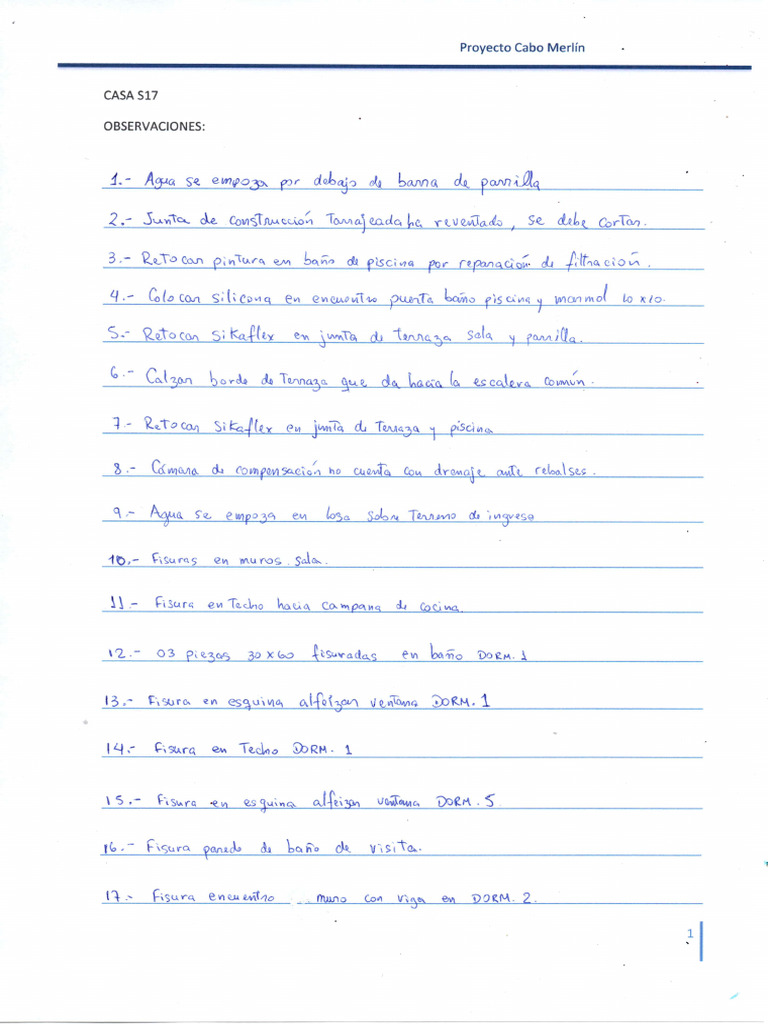 Proyecto Cabo Merlín
CASA S17
OBSERVACIONES:
1.- Agua se empoza por debajo de barra de parrilla
2.- Junta de construcción Tarrajeada ha reventado, se debe cortar.
3.- Retocar pintura en baño de piscina por reparación de filtración.
4.- Colocar silicona en encuentro puerta baño piscina y marmol 10x10.
5.- Retocar Sikaflex en junta de terraza sala y parrilla.
6.- Calzar borde de Terraza que da hacia la escalera común.
7.- Retocar Sikaflex en junta de terraza y piscina
8.- Cámara de compensación no cuenta con drenaje ante rebalses.
9.- Agua se empoza en losa sobre Terreno de ingreso
10.- Fisuras en muros sala.
11.- Fisura en Techo hacia campana de cocina.
12.- 03 piezas 30x60 fisuradas en baño DORM. 1
13.- Fisura en esquina alfeizar ventana DORM. 1
14.- Fisura en Techo DORM. 1
15.- Fisura en esquina alfeizar ventana DORM. 5.
16.- Fisura parede de baño de visita.
17.- Fisura encuentro muro con viga en DORM. 2.
1